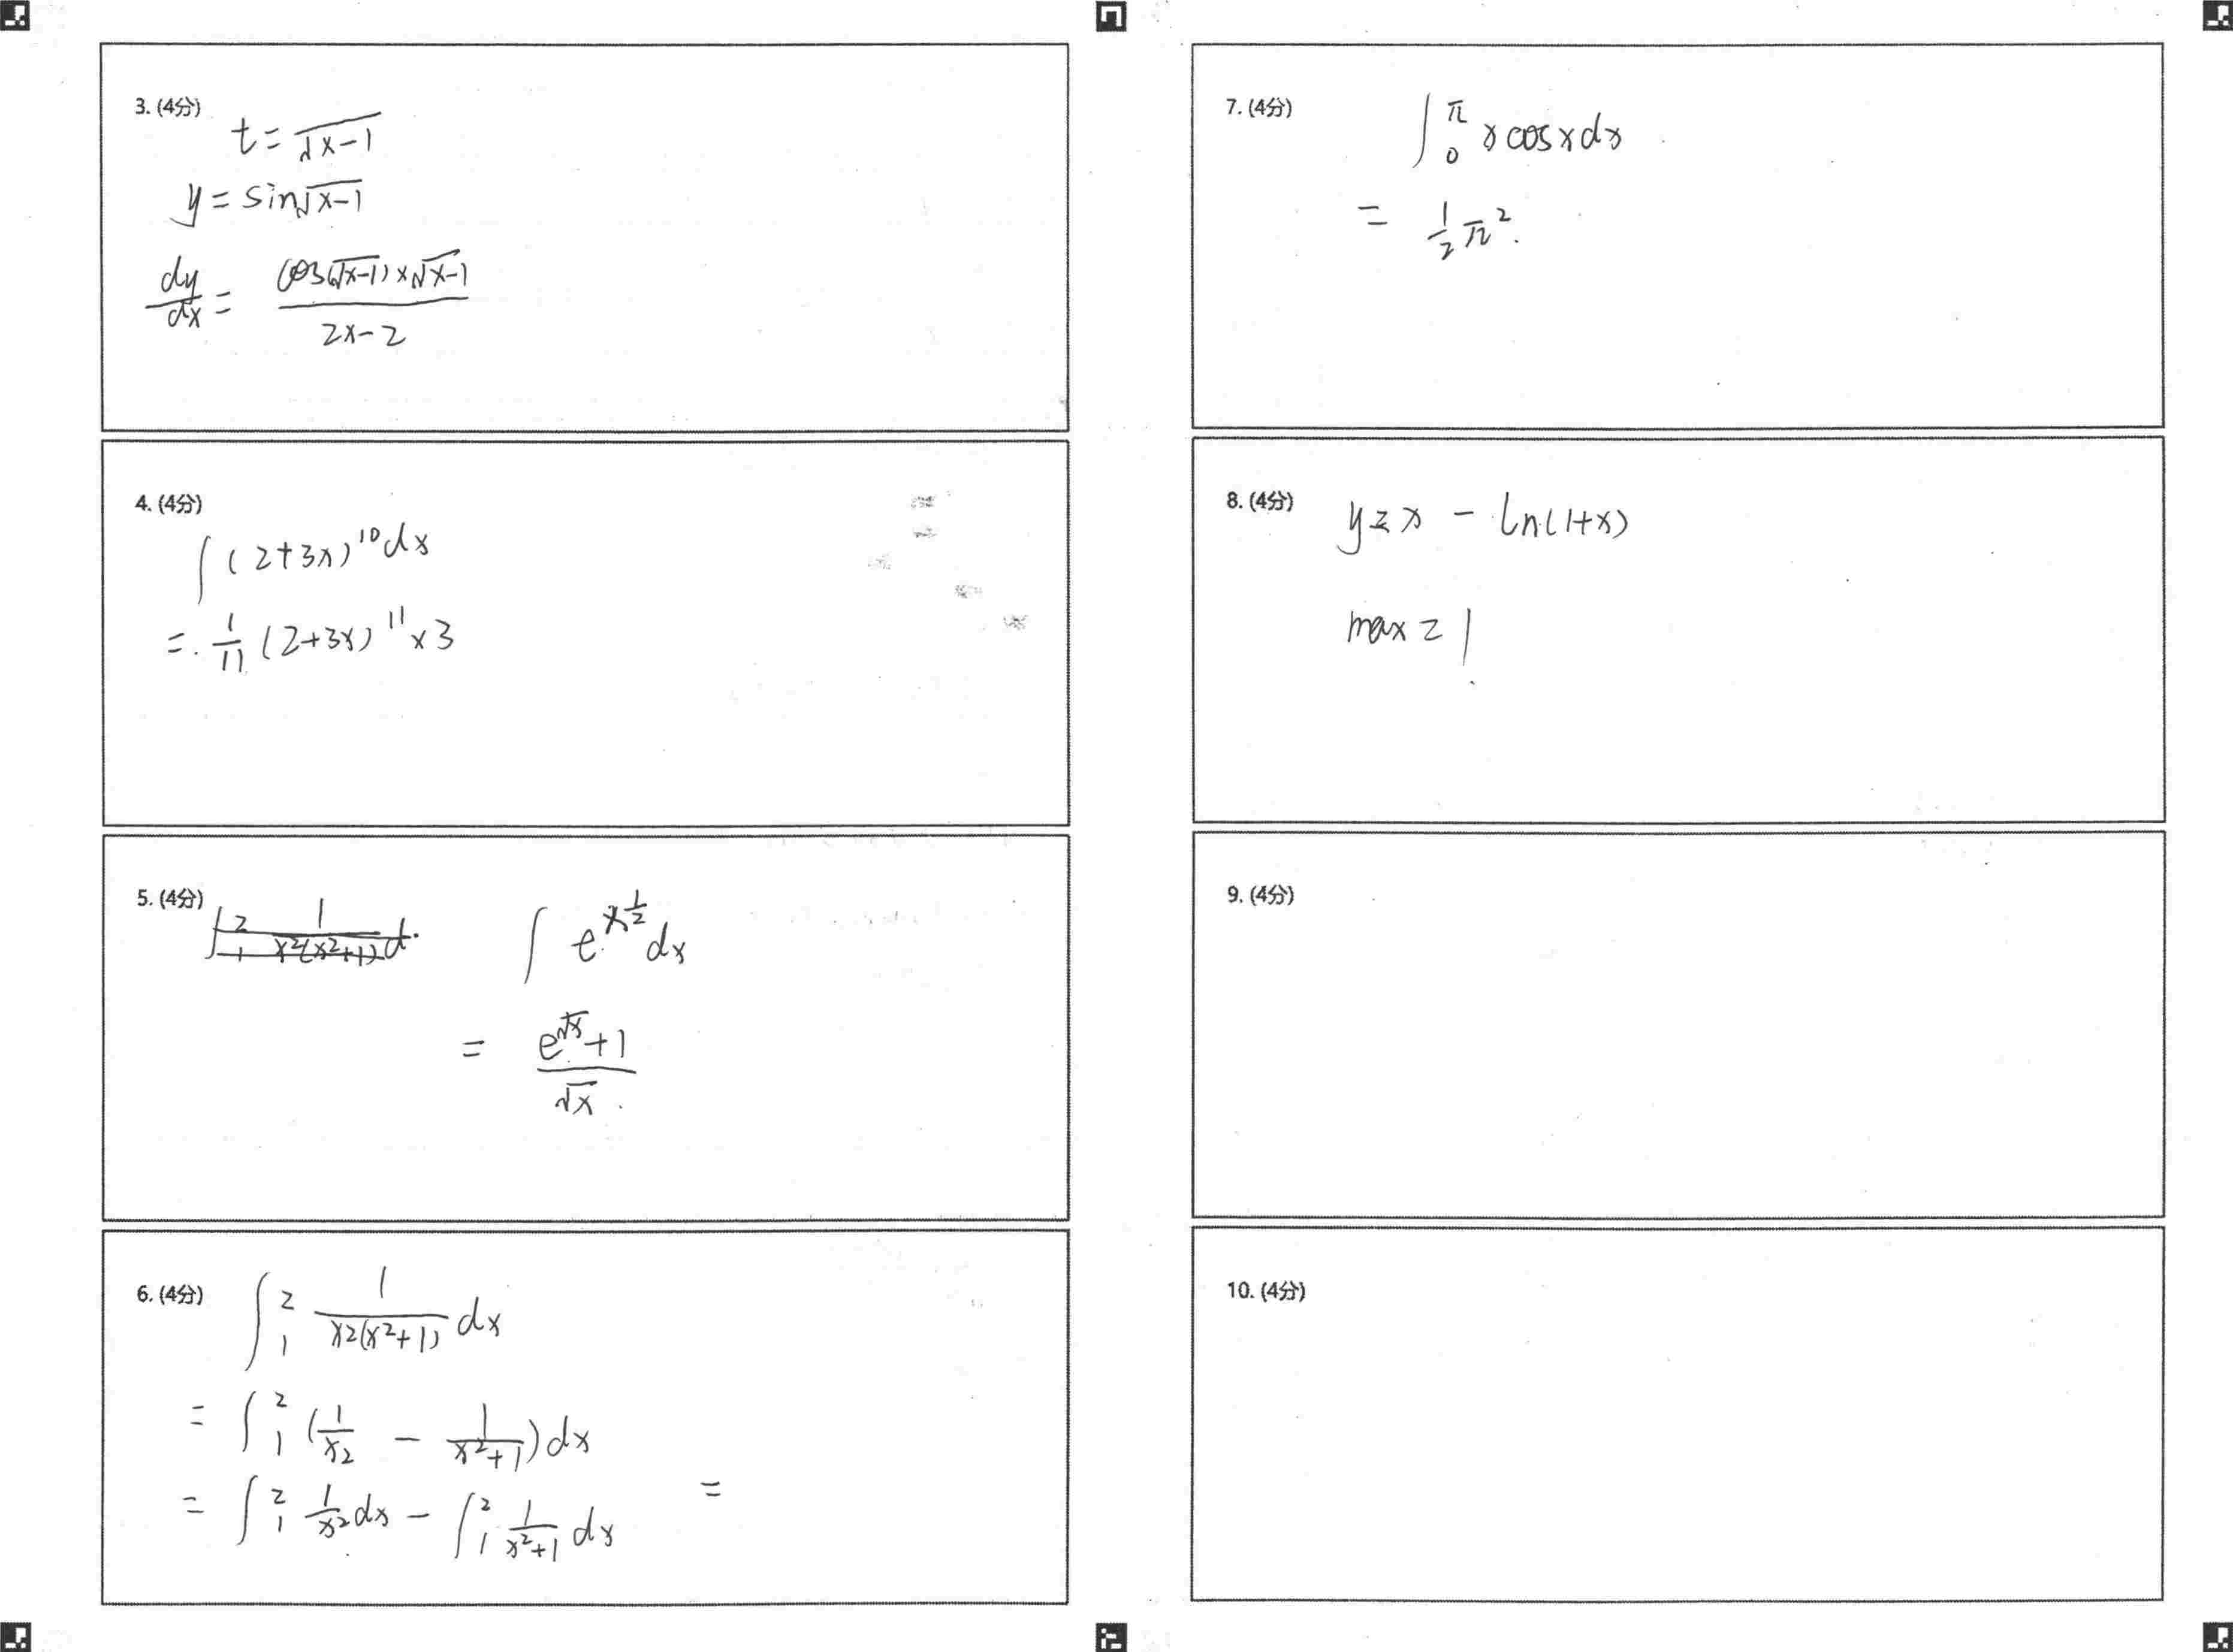 3. (4分)
t = √x-1
y = sin√x-1
dy/dx = cos(√x-1)×√x-1 / 2x-2
4. (4分)
∫(2+3x)¹⁰dx
= 1/11 (2+3x)¹¹×3
5. (4分)
∫₁² 1/x²(x²+1) d
∫ e^x^1/2 dx
= e^√x+1 / √x
6. (4分)
∫₁² 1/x2(x²+1) dx
= ∫₁² (1/x2 - 1/x²+1) dx
= ∫₁² 1/x2 dx - ∫₁² 1/x²+1 dx =
7. (4分)
∫₀^π x cosx dx
= 1/2 π².
8. (4分)
y = x - ln(1+x)
max = 1
9. (4分)
10. (4分)